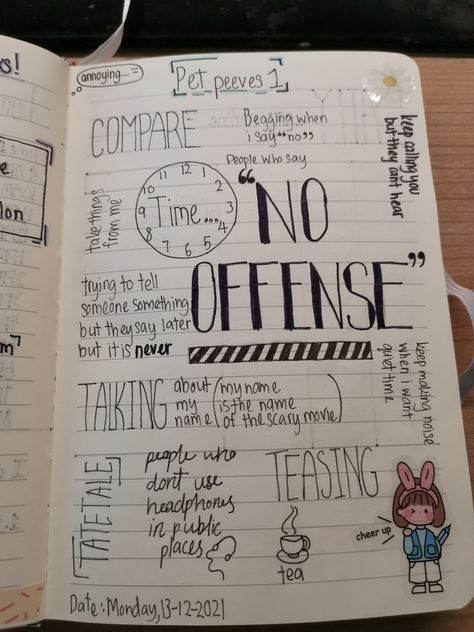 annoying...
Pet peeves 1
COMPARE
Begging when
i say "no"
keep calling you
but they aint hear
People who say
"NO
OFFENSE"
take things
from me
11 12 1
10 2
9 Time... 3
8 4
7 6 5
trying to tell
someone something
but they say later
but it is never
keep making noise
when i want
quiet time
TALKING
about
my
name
(my name
is the name
of the scary movie)
TATETALE
people who
dont use
headphones
in public
places
TEASING
tea
cheer up
Date:Monday,13-12-2021
s!
e
lon
m"